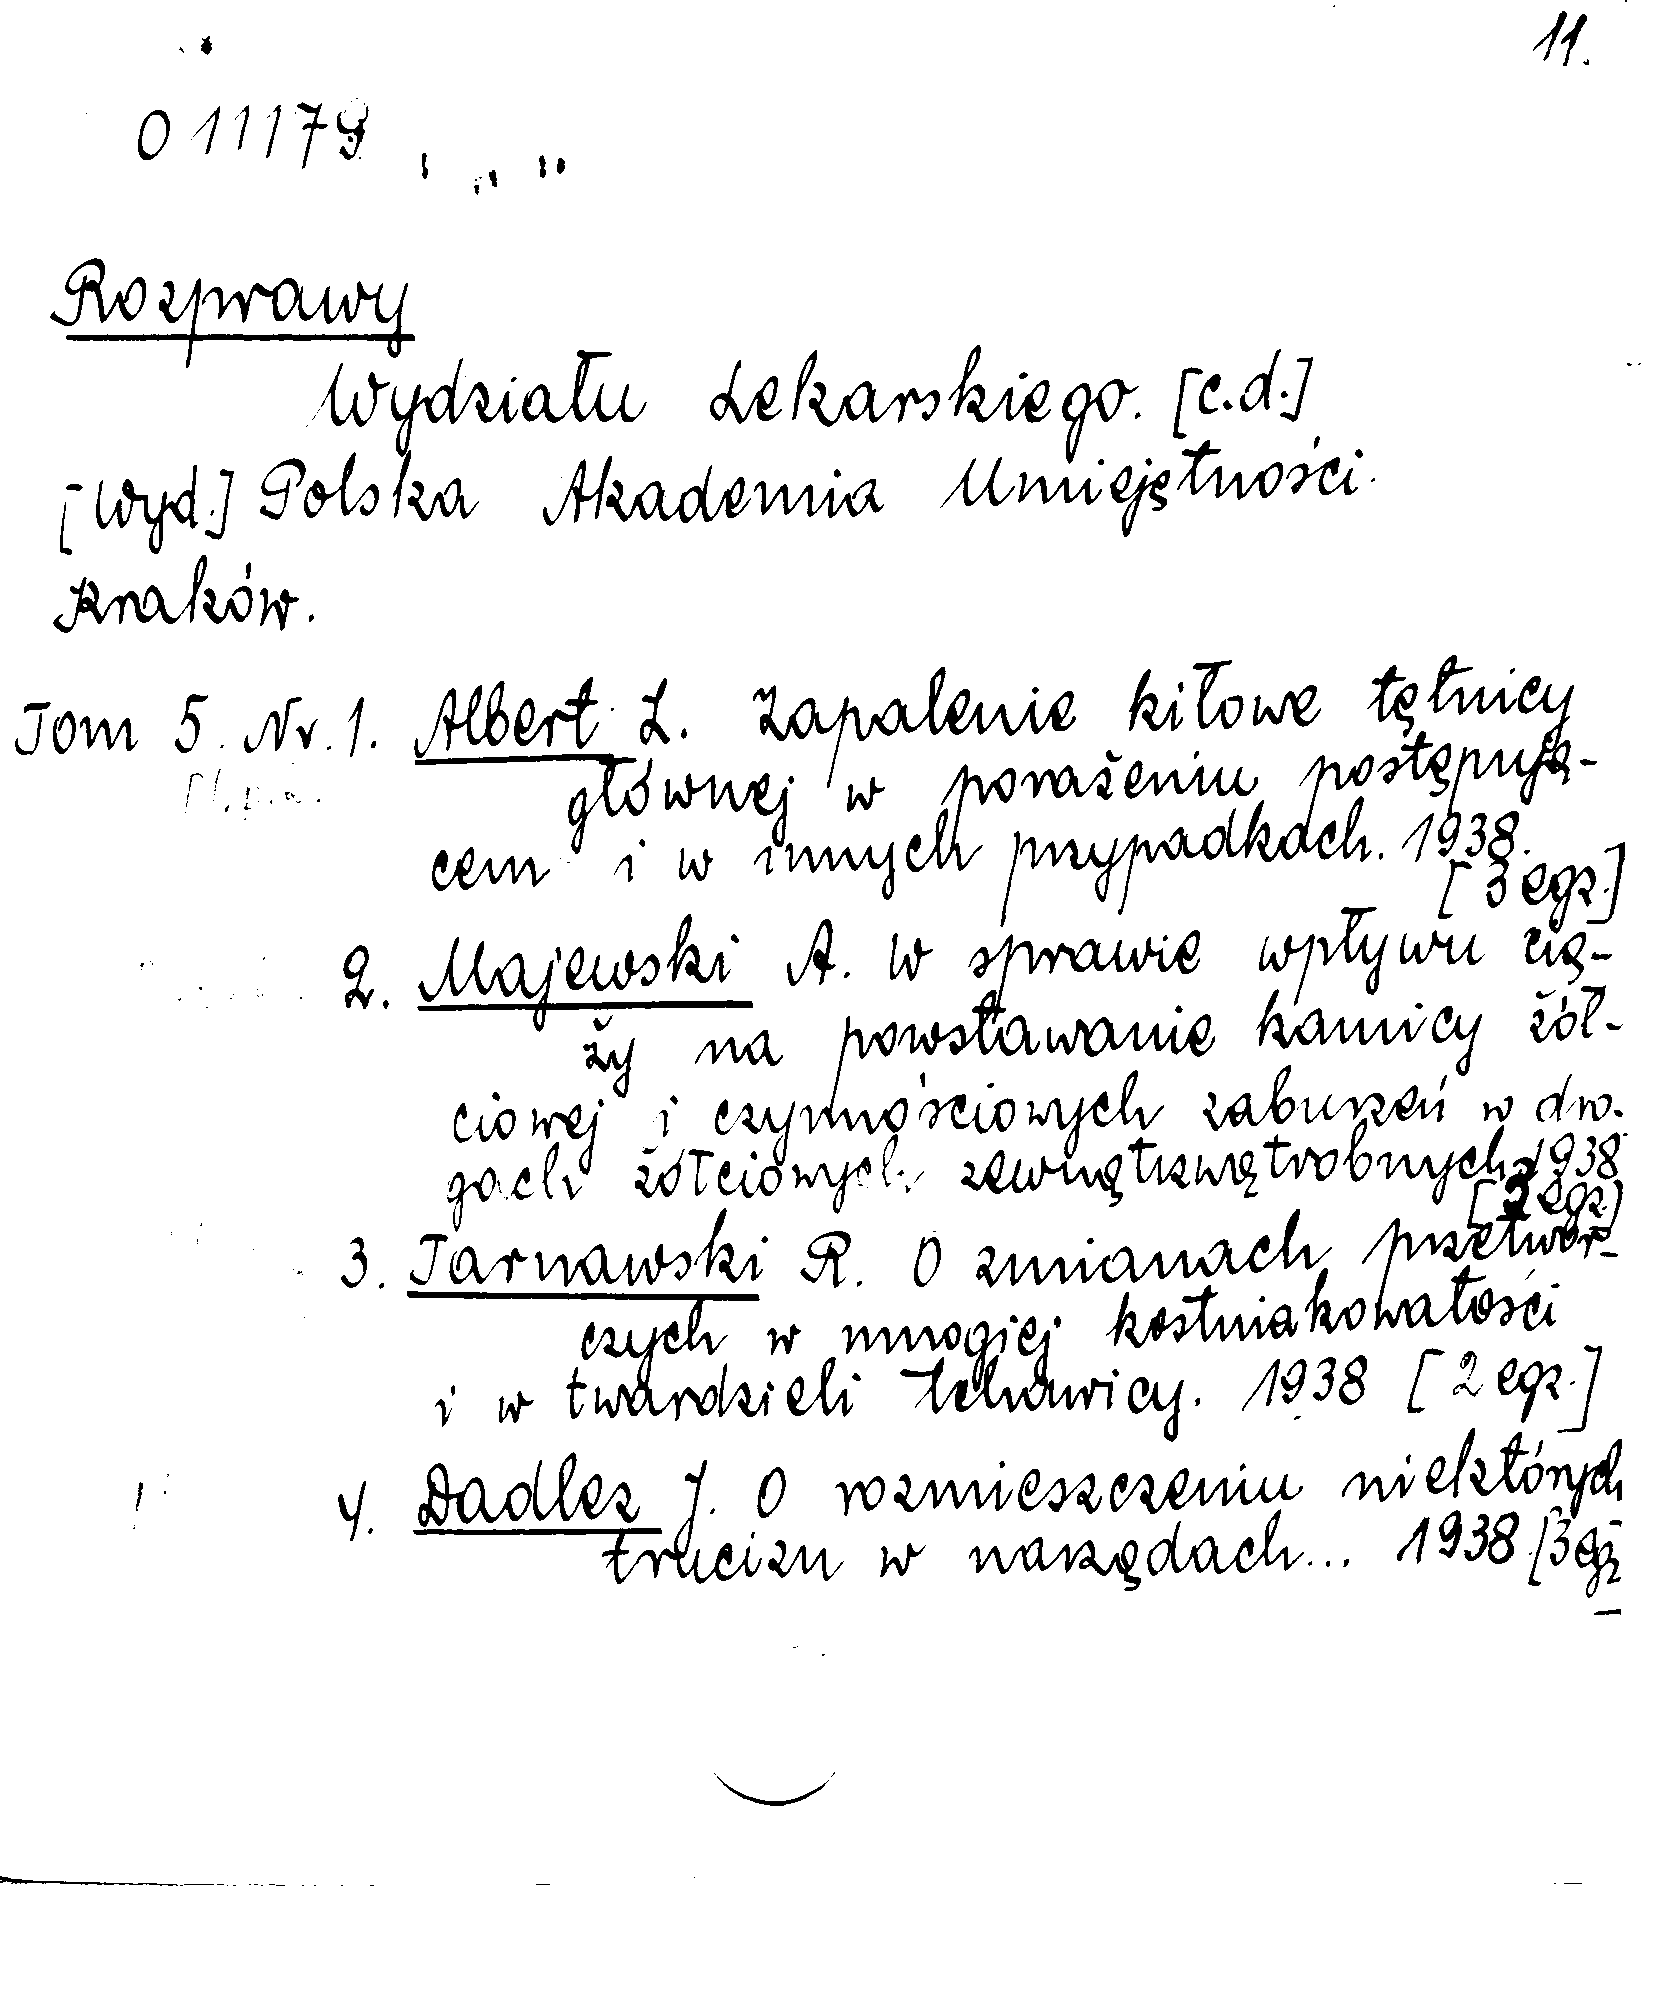 11.
011179
Rozprawy
Wydziału Lekarskiego. [c.d.]
[Wyd.] Polska Akademia Umiejętności.
Kraków.
Tom 5. Nr. 1. Albert L. Zapalenie kiłowe tętnicy
głównej w porażeniu postępują-
cem i w innych przypadkach. 1938.
[3 egz.]
2. Majewski A. W sprawie wpływu cią-
ży na powstawanie kamicy żół-
ciowej i czynnościowych zaburzeń w dro-
gach żółciowych zewnątrzwątrobnych 1938
[2 egz.]
3. Tarnawski R. O zmianach przetwór-
czych w mnogiej kostniakowatości
i w twardzieli tchawicy. 1938 [2 egz.]
4. Dadlez J. O rozmieszczeniu niektórych
trucizn w narzędach... 1938. [3 egz